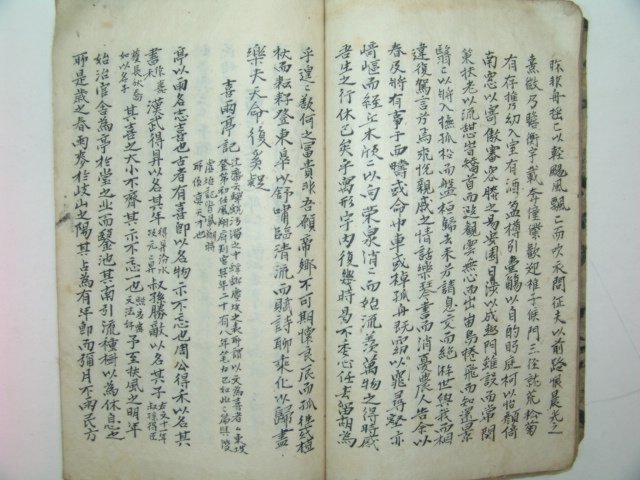 昨非舟搖〻以輕颺風飄〻而吹衣問征夫以前路恨晨光之
熹微乃瞻衡宇載奔僮僕歡迎稚子候門三徑就荒松菊
有存携幼入室有酒盈樽引壺觴以自酌眄庭柯以怡顔倚
南窓以寄傲審容膝之易安園日涉以成趣門雖設而常関
策扶老以流憩時矯首而遐觀雲無心而出岫鳥倦飛而知還景
翳〻以將入撫孤松而盤桓歸去来兮請息交而絶游世與我而相
違復駕言兮焉求悅親戚之情話樂琴書而消憂農人告余以
春及將有事于西疇或命巾車或棹孤舟既窈以窕尋壑亦
崎嶇而經丘木欣〻以向榮泉涓〻而始流羨萬物之得時感
吾生之行休已矣乎寓形宇內復幾時曷不委心任去留胡為
乎遑〻欲何之富貴非吾願帝鄕不可期懷良辰而孤徃或植
杖而耘耔登東皐以舒嘯臨清流而賦詩聊乘化以歸盡
樂夫天命復奚疑
喜雨亭記
亭以雨名志喜也古者有喜卽以名物示不忘也周公得禾以名其
書漢武得鼎以名其年叔孫勝敵以名其子
其喜之大小不齊其示不忘一也予至扶風之明年
始治官舍為亭於堂之北而鑿池其南引流種樹以為休息之
所是歲之春雨麥於岐山之陽其占為有年卽而彌月不雨民方